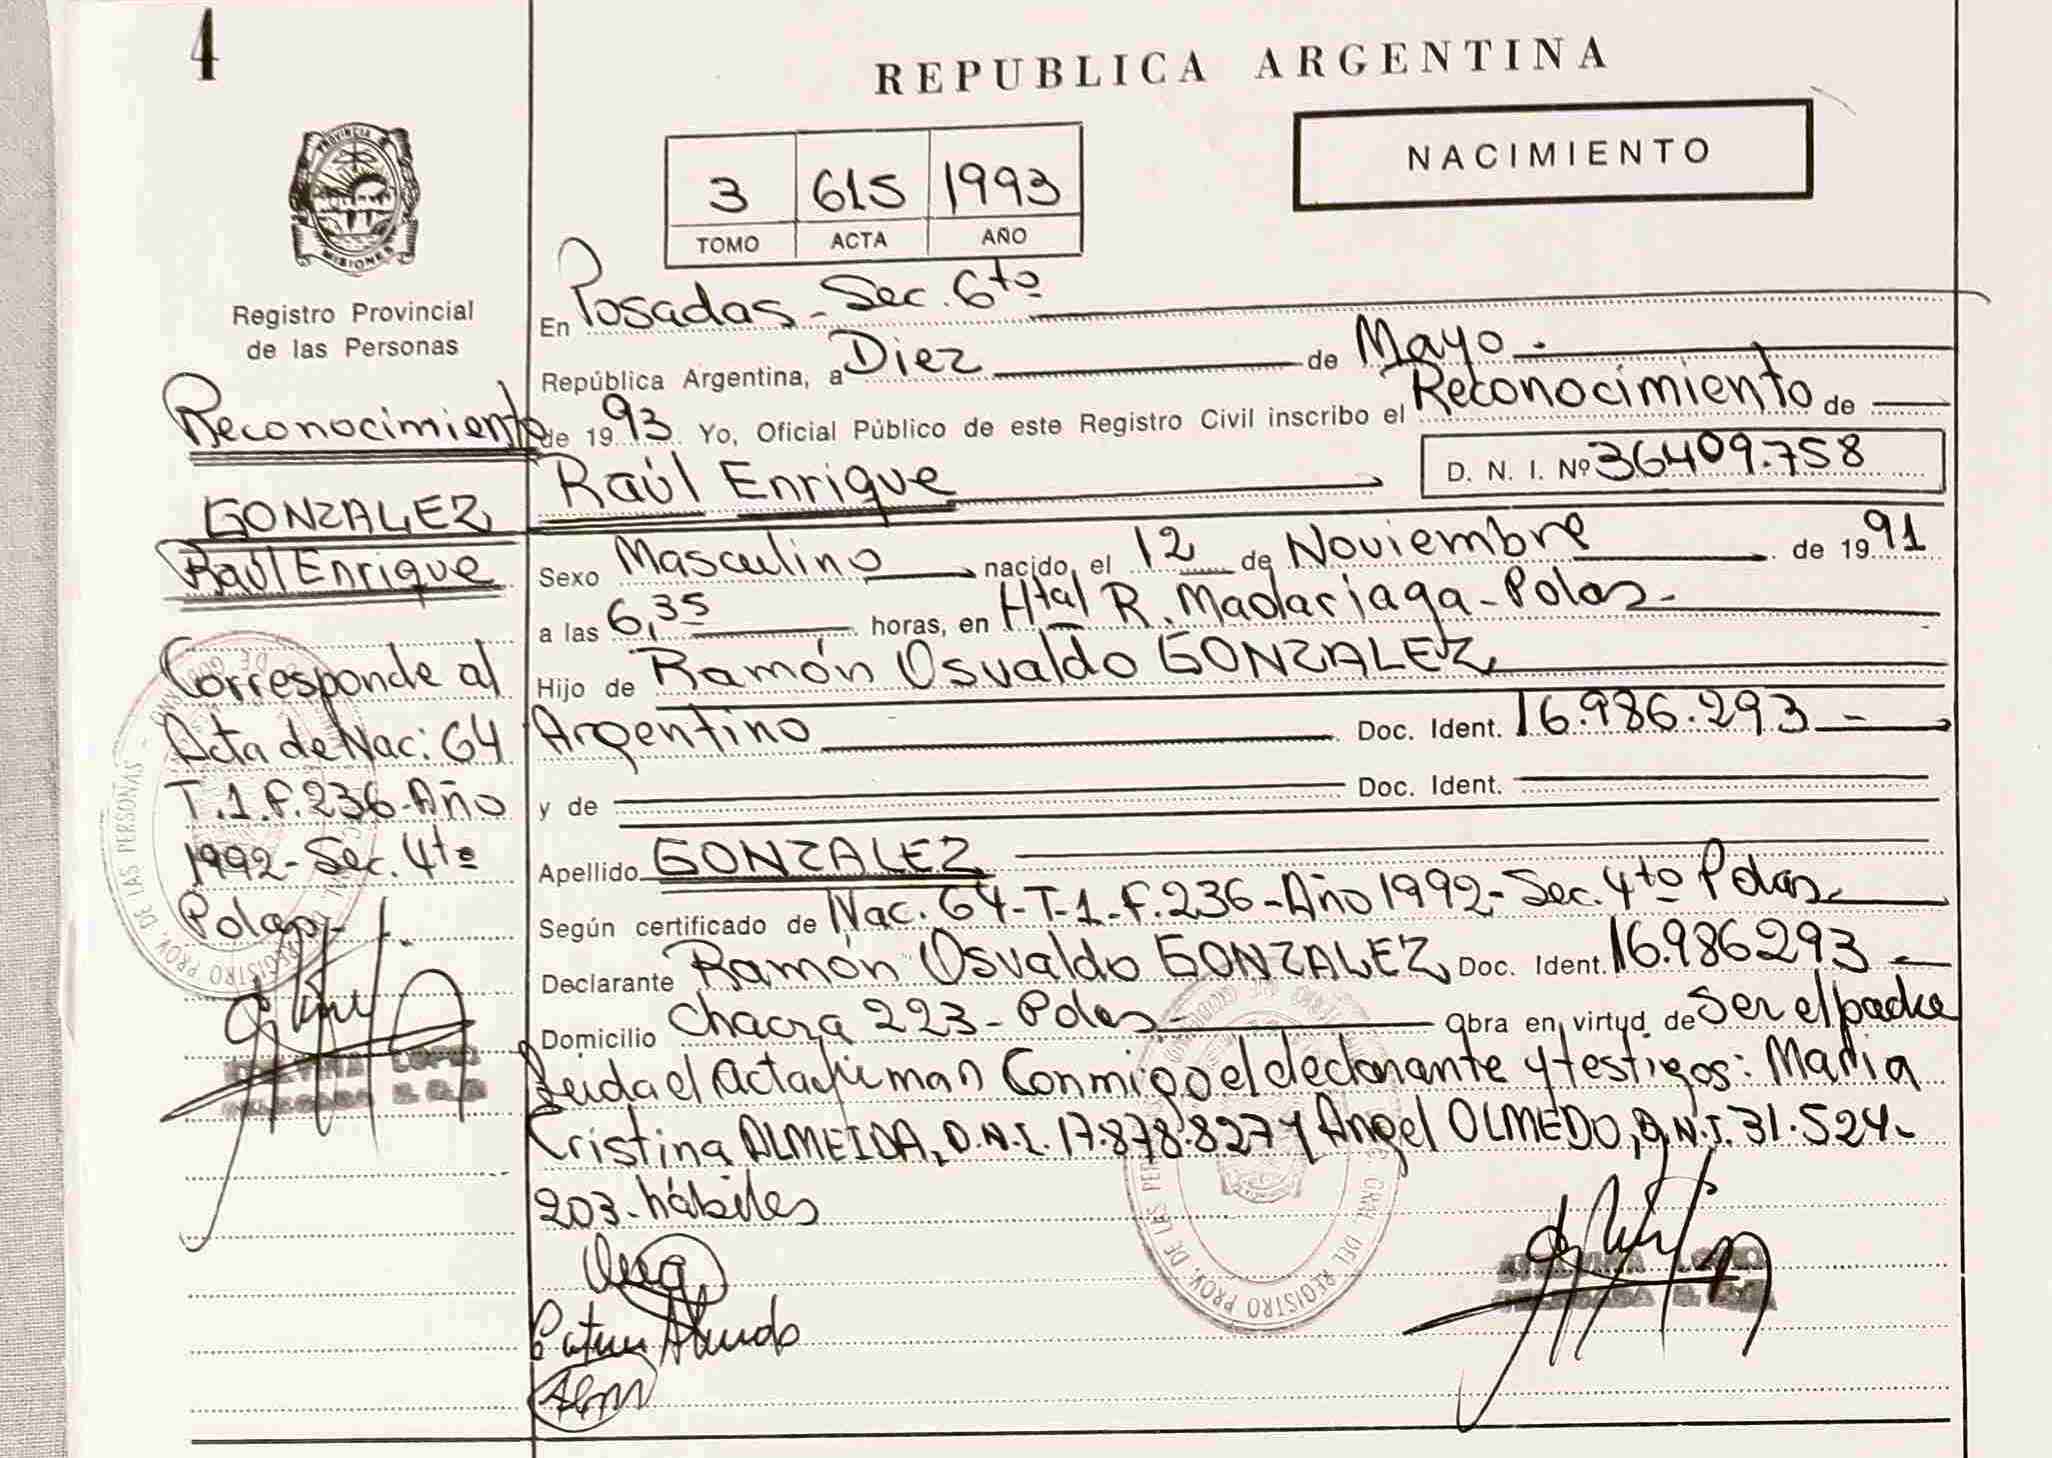 4
REPUBLICA ARGENTINA
PROVINCIA DE
MISIONES
Registro Provincial
de las Personas
3 615 1993
TOMO ACTA AÑO
NACIMIENTO
En Posadas - Sec. 6to
República Argentina, a Diez de Mayo -
de 1993 Yo, Oficial Público de este Registro Civil inscribo el Reconocimiento de
Raúl Enrique D. N. I. Nº 36409.758
Sexo Masculino nacido el 12 de Noviembre de 1991
a las 6,35 horas, en Htal R. Madariaga - Pdas -
Hijo de Ramón Osvaldo GONZALEZ
Argentino Doc. Ident. 16.986.293 -
y de Doc. Ident.
Apellido GONZALEZ
Según certificado de Nac. 64 - T-1 - F. 236 - Año 1992 - Sec. 4to Pdas -
Declarante Ramón Osvaldo GONZALEZ Doc. Ident. 16.986293 -
Domicilio Chacra 223 - Pdas - Obra en virtud de Ser el padre
Leida el acta firman Conmigo el declarante y testigos: Maria
Cristina ALMEIDA, D.N.I. 17.878.827 y Angel OLMEDO, D.N.I. 31.524-
203 - hábiles
Reconocimiento
GONZALEZ
Raúl Enrique
Corresponde al
Acta de Nac: 64
T.1.F.236-Año
1992- Sec. 4to
Pdas -
LOPEZ
REGISTRO PROV. DE LAS PERSONAS
GRAL. DEL REGISTRO PROV. DE LAS PER